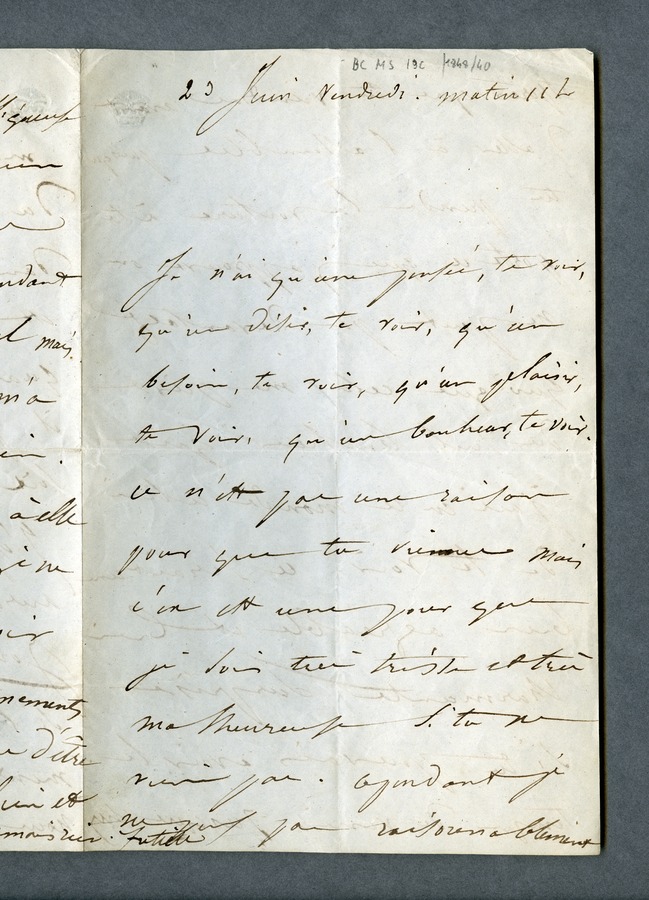 BC MS 19c 1848/40
23 Juin Vendredi. matin 11 h
Je n'ai qu'une pensée, te voir,
qu'un désir, te voir, qu'un
besoin, te voir, qu'un plaisir,
te voir, qu'un bonheur, te voir.
ce n'est pas une raison
pour que tu viennes mais
c'en est une pour que
je sois très triste et très
malheureuse si tu ne
viens pas. cependant je
ne puis pas raisonnablement
mais
m'a
à elle
d'être